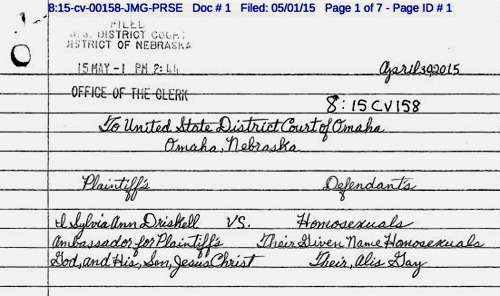 8:15-cv-00158-JMG-PRSE Doc # 1 Filed: 05/01/15 Page 1 of 7 - Page ID # 1
FILED
U.S. DISTRICT COURT
DISTRICT OF NEBRASKA
15 MAY -1 PM 2:44
April 30, 2015
OFFICE OF THE CLERK
8:15CV158
To United State District Court of Omaha
Omaha, Nebraska
Plaintiff's Defendant's
I Sylvia Ann Driskell VS. Homosexuals
Ambassador for Plaintiff's Their Given Name Homosexuals
God, and His, Son, Jesus Christ Their, Alis Gay